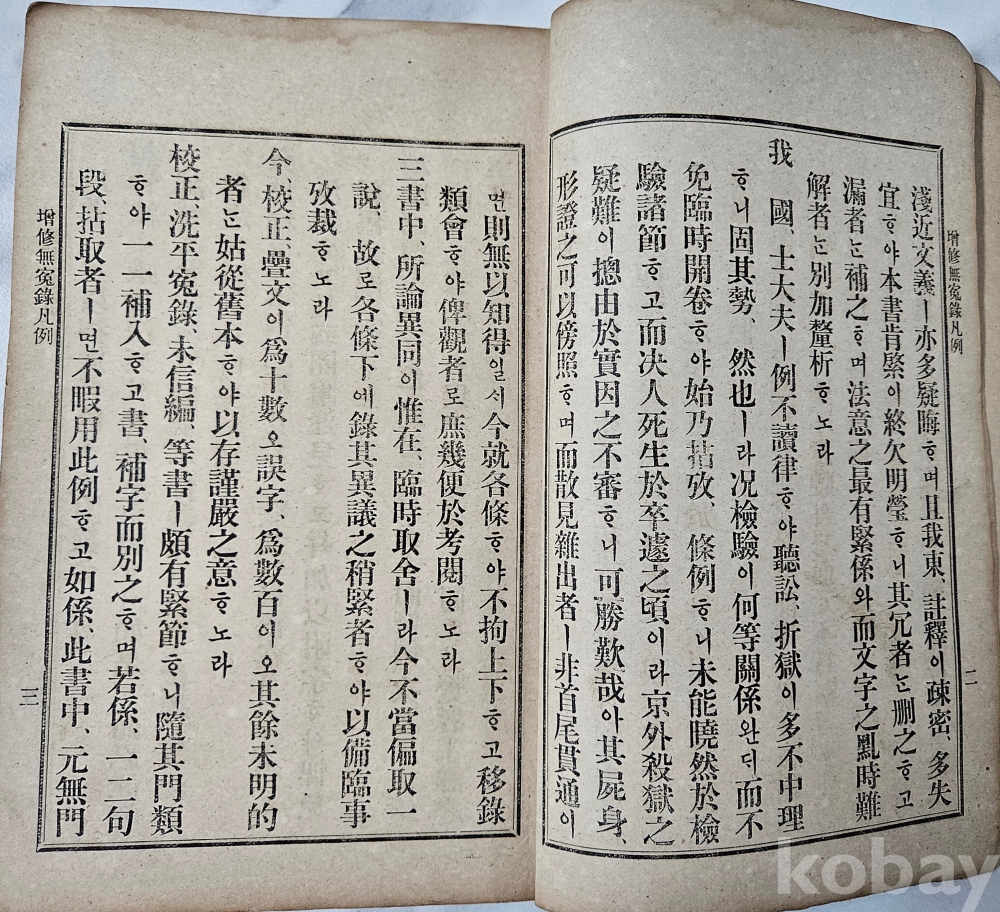 增修無冤錄凡例
淺近文義ㅣ亦多疑晦ᄒᆞ며且我東、註釋이疎密、多失
宜ᄒᆞ야本書肯綮이終欠明瑩ᄒᆞ니其冗者ᄂᆞᆫ刪之ᄒᆞ고
漏者ᄂᆞᆫ補之ᄒᆞ며法意之最有緊係와而文字之 時難
解者ᄂᆞᆫ別加釐析ᄒᆞ노라
我 國、士大夫ㅣ例不讀律ᄒᆞ야聽訟、折獄이多不中理
ᄒᆞ니固其勢、然也ㅣ라况檢驗이何等關係완ᄃᆡ而不
免臨時開卷ᄒᆞ야始乃拈攷、條例ᄒᆞ니未能曉然於檢
驗諸節ᄒᆞ고而决人死生於卒遽之頃이라京外殺獄之
疑難이摠由於實因之不審ᄒᆞ니可勝歎哉아其屍身、
形證之可以傍照ᄒᆞ며而散見雜出者ㅣ非首尾貫通이
二
면則無以知得일ᄉᆡ今就各條ᄒᆞ야不拘上下ᄒᆞ고移錄
類會ᄒᆞ야俾觀者로庶幾便於考閱ᄒᆞ노라
三書中、所論異同이惟在、臨時取舍ㅣ라今不當偏取一
說、故로各條下에錄其異議之稍緊者ᄒᆞ야以備臨事
攷裁ᄒᆞ노라
今、校正、疊文이爲十數오誤字、爲數百이오其餘未明的
者ᄂᆞᆫ姑從舊本ᄒᆞ야以存謹嚴之意ᄒᆞ노라
校正、洗平寃錄、未信編、等書ㅣ頗有緊節ᄒᆞ니隨其門類
ᄒᆞ야一一補入ᄒᆞ고書、補字而別之ᄒᆞ며若係、一二句
段、拈取者ㅣ면不暇用此例ᄒᆞ고如係、此書中、元無門
增修無冤錄凡例
三
kobay